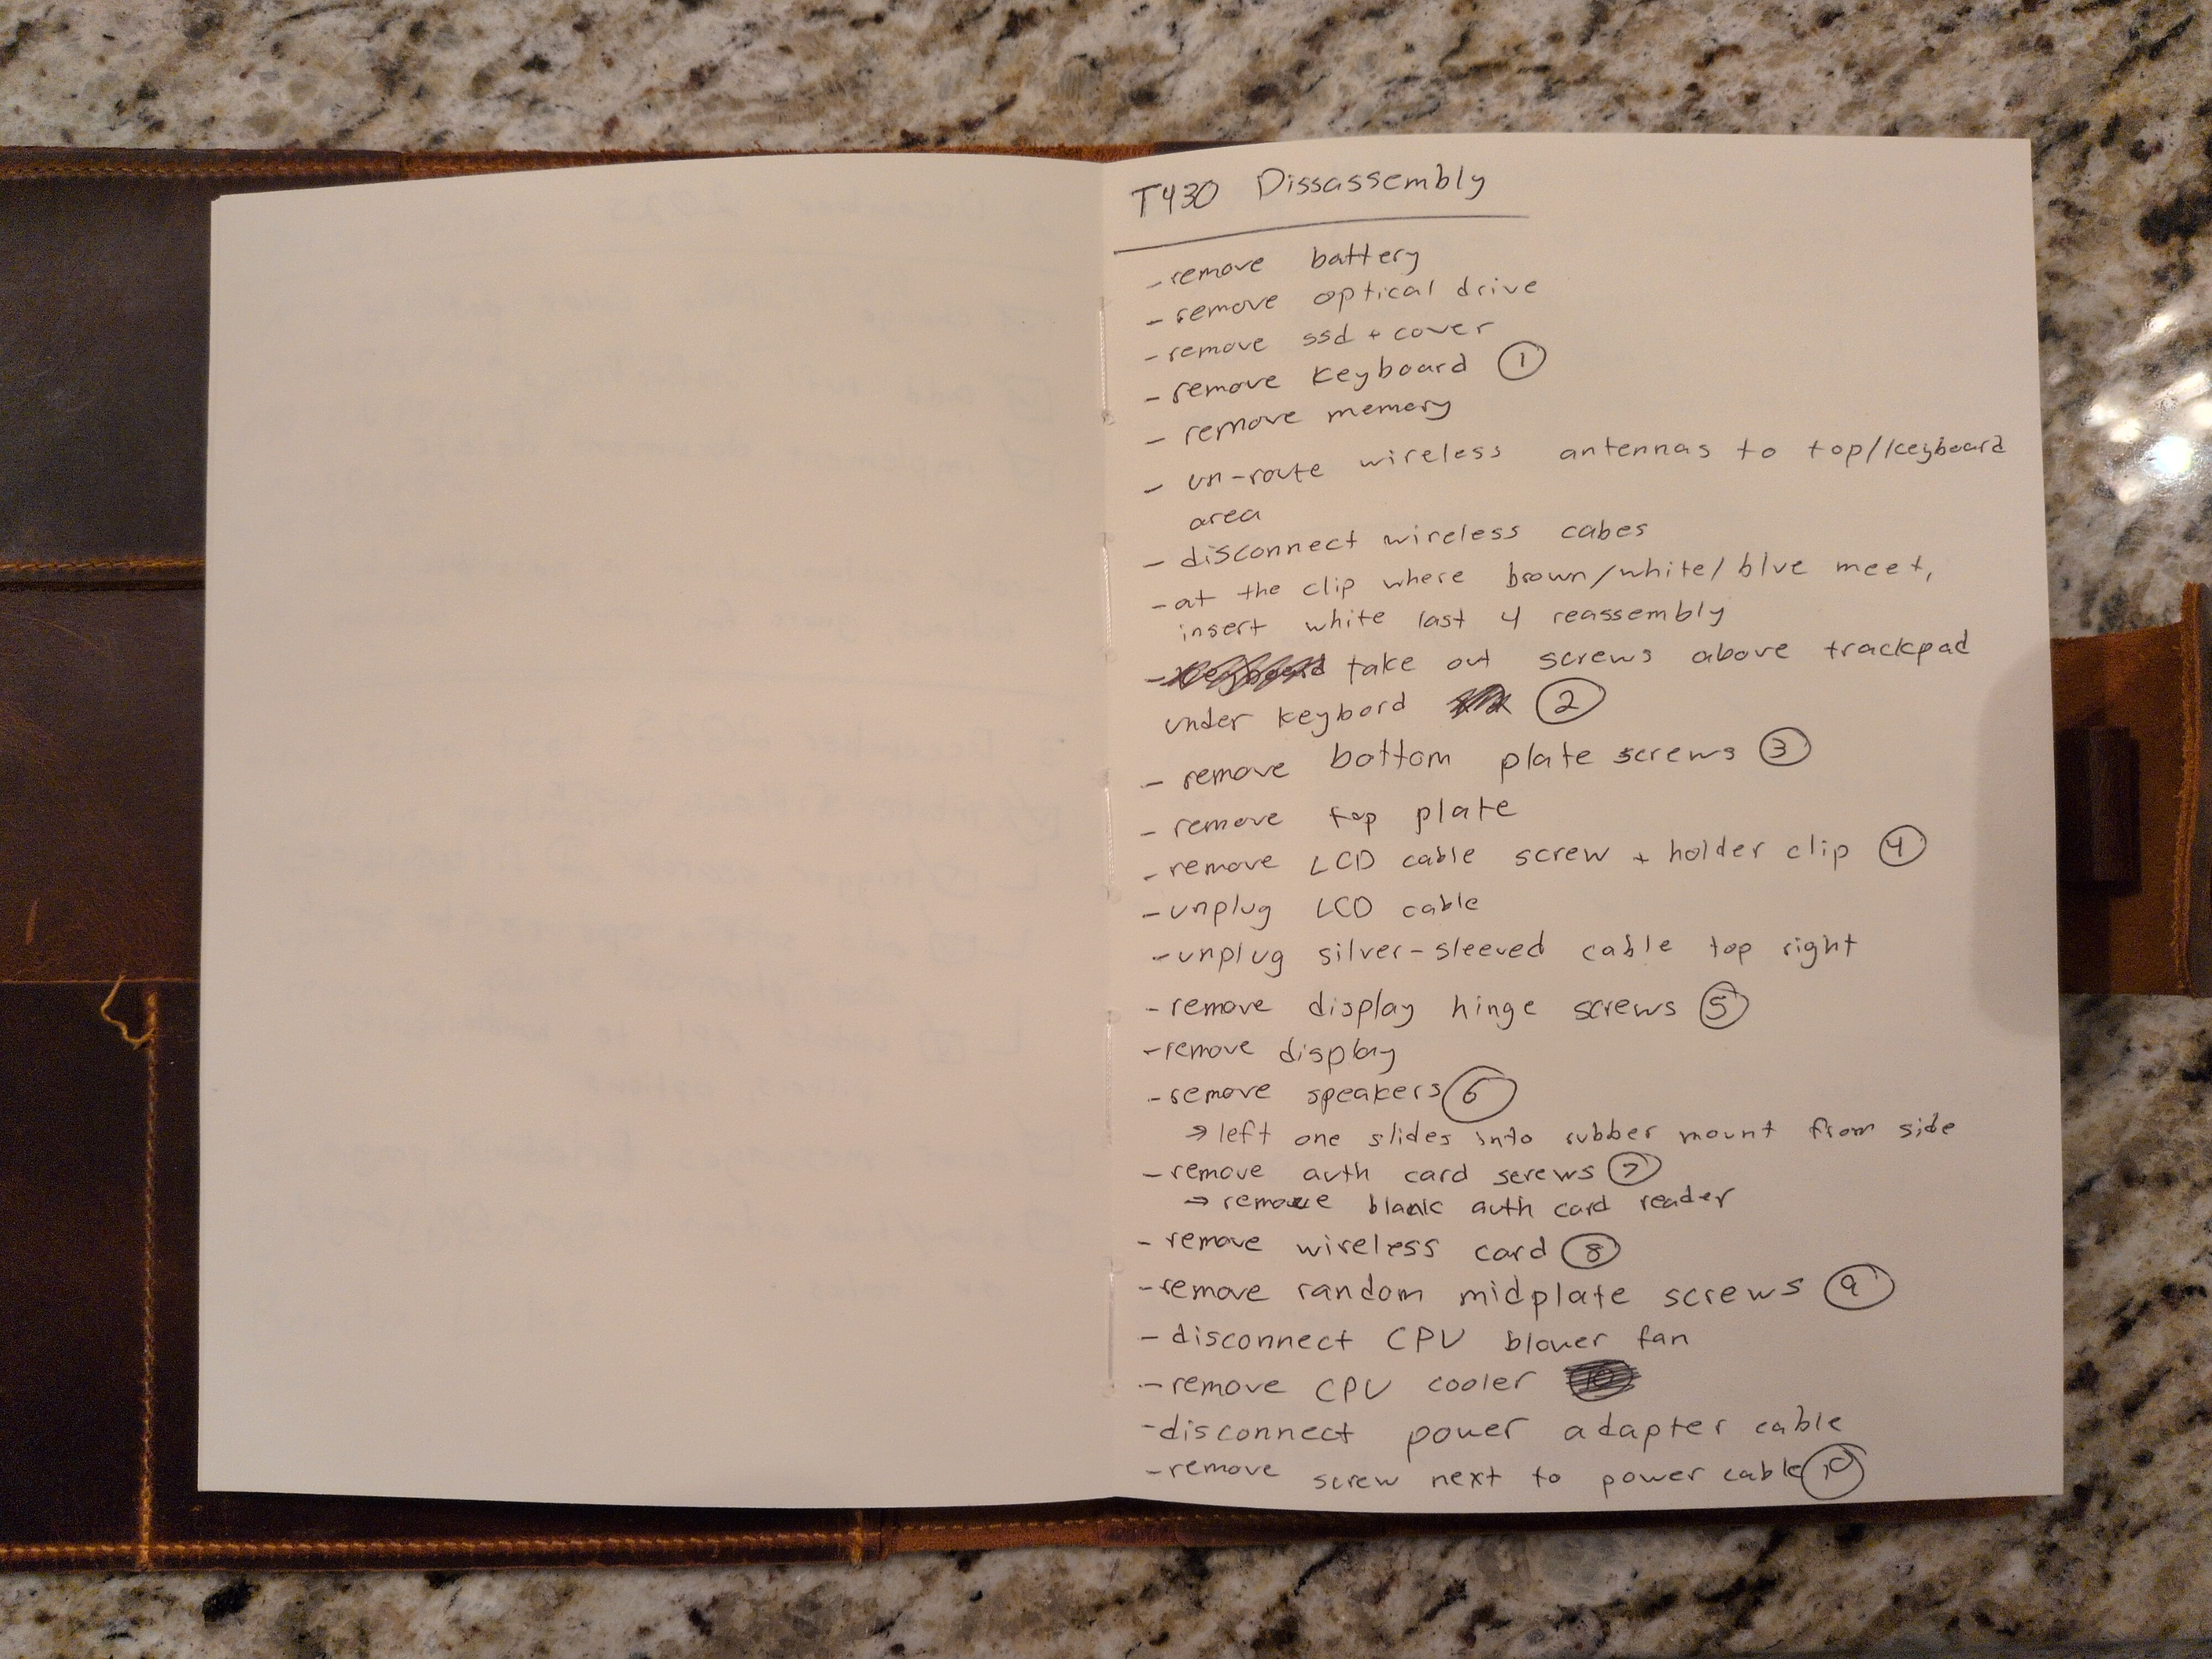 T430 Dissassembly
- remove battery
- remove optical drive
- remove ssd + cover
- remove keyboard ①
- remove memory
- un-route wireless antennas to top/keyboard
area
- disconnect wireless cabes
- at the clip where brown/white/blue meet,
insert white last 4 reassembly
- take out screws above trackpad
under keybord ②
- remove bottom plate screws ③
- remove top plate
- remove LCD cable screw + holder clip ④
- unplug LCD cable
- unplug silver-sleeved cable top right
- remove display hinge screws ⑤
- remove display
- remove speakers ⑥
→ left one slides into rubber mount from side
- remove auth card screws ⑦
→ remove blank auth card reader
- remove wireless card ⑧
- remove random midplate screws ⑨
- disconnect CPU blower fan
- remove CPU cooler
- disconnect power adapter cable
- remove screw next to power cable ⑩